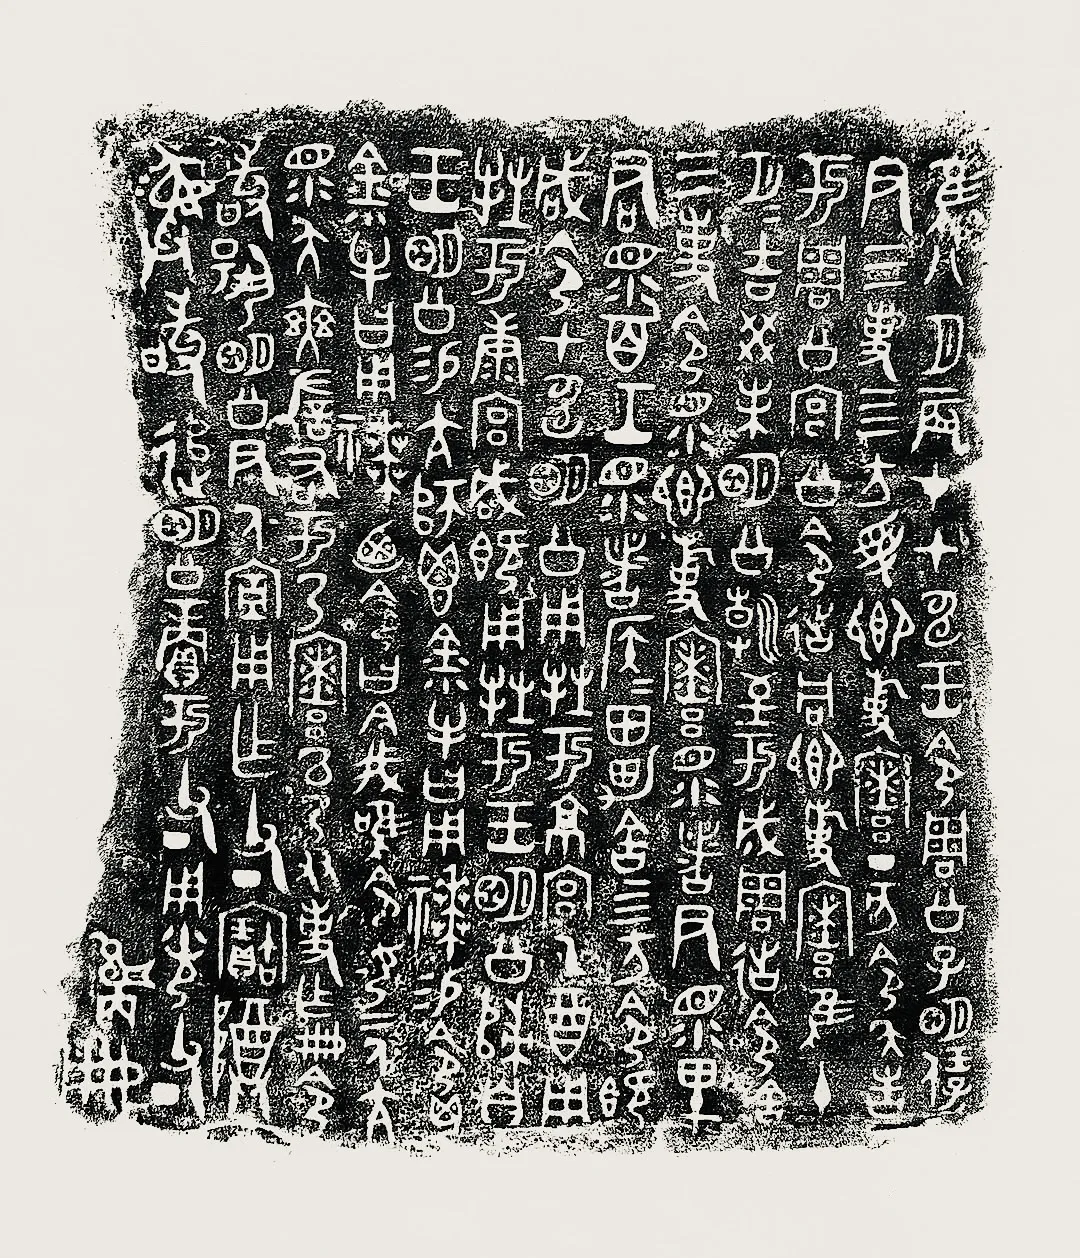 隹八月辰才甲申王令周公子明保
尹三事四方受卿事寮丁亥令夨告
于周公宮公令𢓊同卿事寮隹十
月月吉癸未明公朝至于成周𢓊令舍
三事令眔卿事寮眔者尹眔里
君眔百工眔者侯侯田男舍四方令既
咸令甲申明公用牲于京宮乙酉用
牲于康宮咸既用牲于王明公歸自
王明公易亢師鬯金小牛曰用𥛱易令鬯
金小牛曰用𥛱迺令曰今我唯令女二人亢
眔夨奭左右于乃寮以乃友事乍冊令
敢揚明公尹厥宁用乍父丁寶尊彝
敢追明公賞于父丁用光父丁
冊